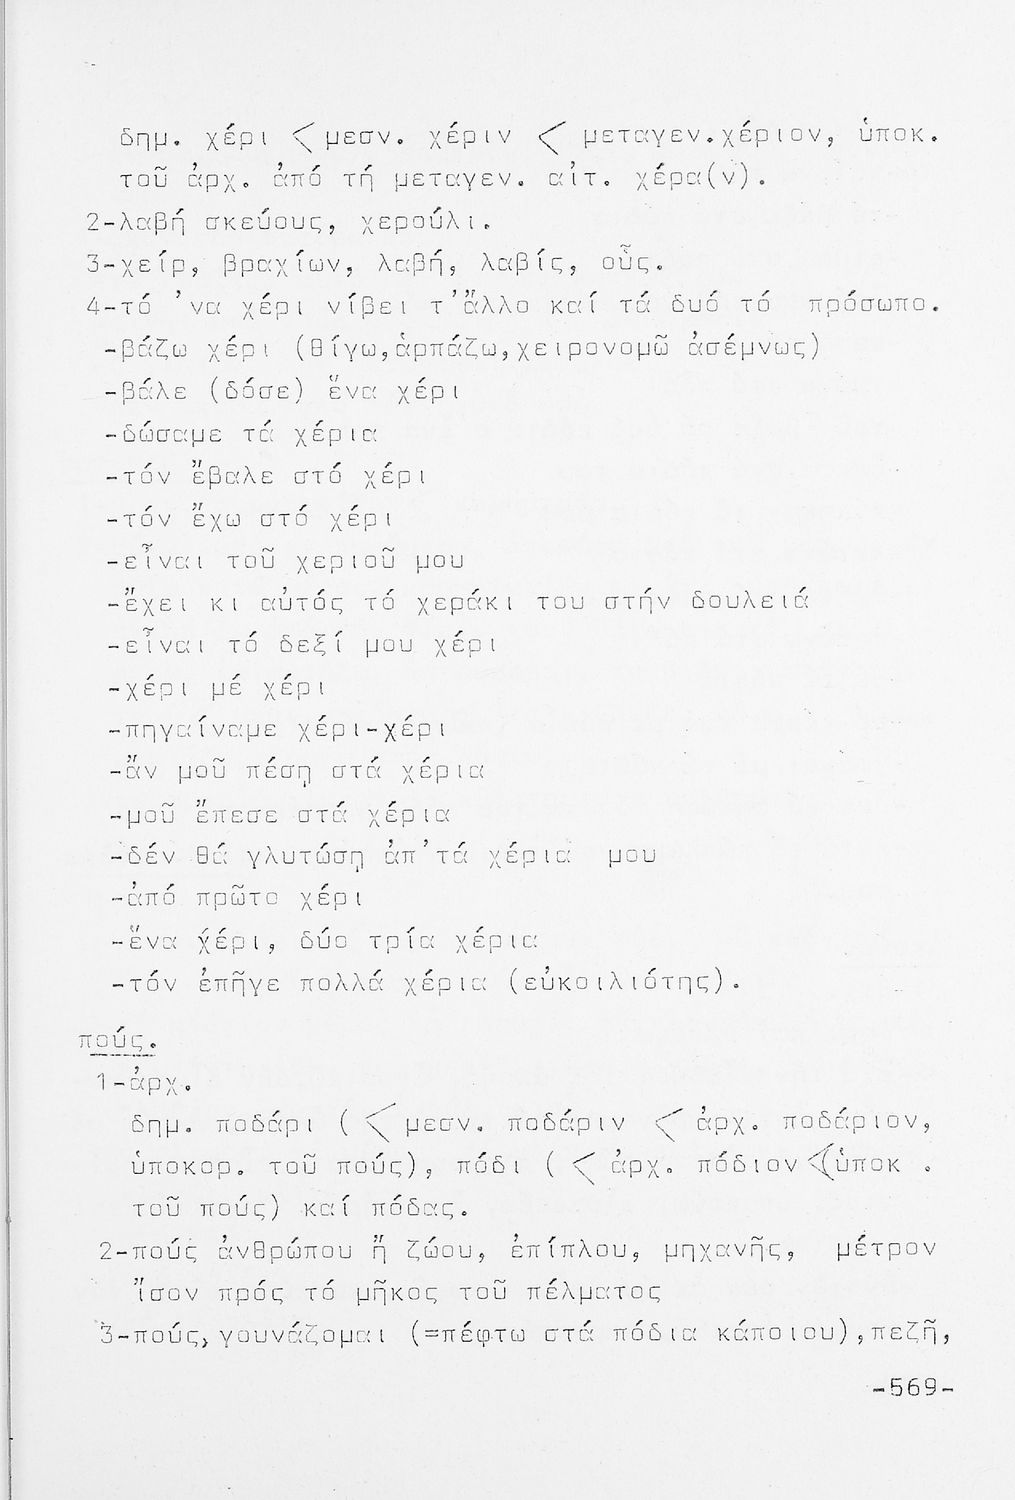 δημ. χέρι < μεσν. χέριν < μεταγεν.χέριον, ὑποκ.
τοῦ ἀρχ. ἀπό τή μεταγεν. αἰτ. χέρα(ν).
2-λαβή σκεύους, χερούλι.
3-χείρ, βραχίων, λαβή, λαβίς, οὖς.
4-τό 'να χέρι νίβει τ'ἄλλο καί τά δυό τό πρόσωπο.
-βάζω χέρι (θίγω,ἁρπάζω,χειρονομῶ ἀσέμνως)
-βάλε (δόσε) ἕνα χέρι
-δώσαμε τά χέρια
-τόν ἔβαλε στό χέρι
-τόν ἔχω στό χέρι
-εἶναι τοῦ χεριοῦ μου
-ἔχει κι αὐτός τό χεράκι του στήν δουλειά
-εἶναι τό δεξί μου χέρι
-χέρι μέ χέρι
-πηγαίναμε χέρι-χέρι
-ἄν μοῦ πέσῃ στά χέρια
-μοῦ ἔπεσε στά χέρια
-δέν θά γλυτώσῃ ἀπ'τά χέρια μου
-ἀπό πρῶτο χέρι
-ἕνα χέρι, δύο τρία χέρια
-τόν ἐπῆγε πολλά χέρια (εὐκοιλιότης).
πούς.
1-ἀρχ.
δημ. ποδάρι ( < μεσν. ποδάριν < ἀρχ. ποδάριον,
ὑποκορ. τοῦ πούς), πόδι ( < ἀρχ. πόδιον <(ὑποκ .
τοῦ πούς) καί πόδας.
2-πούς ἀνθρώπου ἤ ζώου, ἐπίπλου, μηχανῆς, μέτρον
ἴσον πρός τό μῆκος τοῦ πέλματος
3-πούς, γουνάζομαι (=πέφτω στά πόδια κάποιου),πεζῇ,
-569-